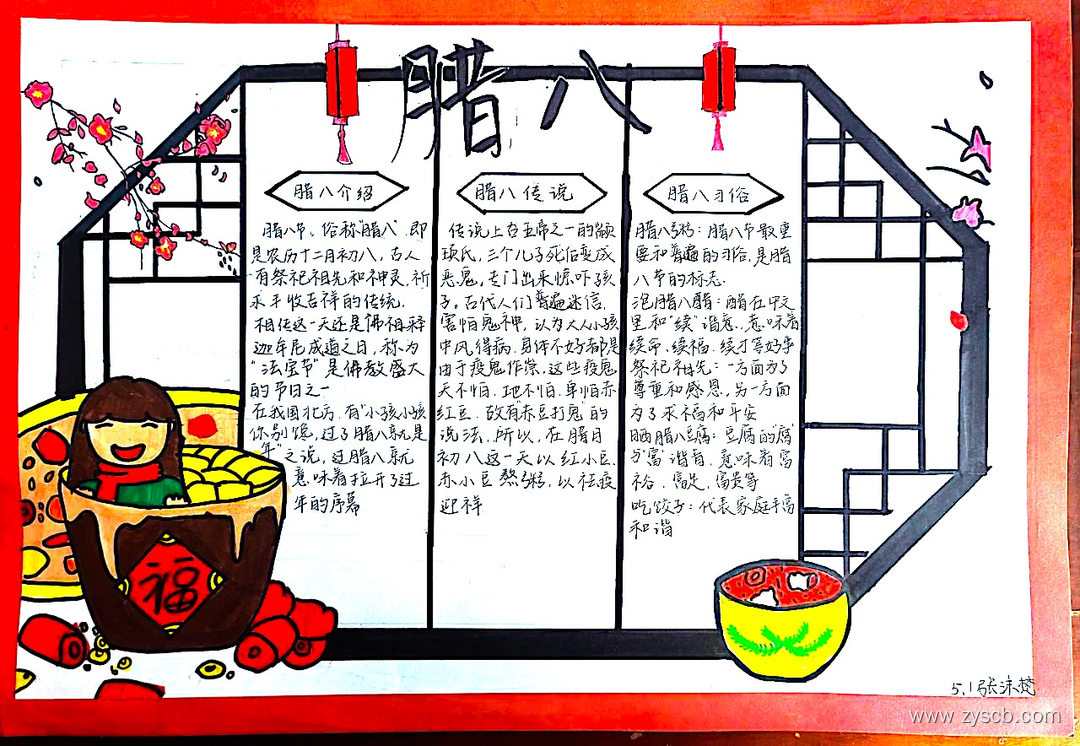 腊八
腊八介绍
腊八节、俗称"腊八"即
是农历十二月初八，古人
有祭祀祖先和神灵，祈
求丰收吉祥的传统
相传这一天还是佛祖释
迦牟尼成道之日，称为
"法宝节"是佛教盛大
的节日之一
在我国北方，有"小孩小孩
你别馋，过了腊八就是
年"之说，过腊八就
意味着拉开了过
年的序幕
腊八传说
传说上古五帝之一的颛
顼氏，三个儿子死后变成
恶鬼，专门出来惊吓孩
子。古代人们普遍迷信，
害怕鬼神，认为大人小孩
中风得病，身体不好都是
由于疫鬼作祟，这些疫鬼
天不怕，地不怕，单怕赤
红豆，故有"赤豆打鬼"的
说法，所以，在腊月
初八这一天以红小豆，
赤小豆熬粥，以祛疫
迎祥
腊八习俗
腊八粥：腊八节最重
要和普遍的习俗，是腊
八节的标志
泡腊八醋：醋在中文
里和"续"谐意，意味着
续命、续福、续才等好事
祭祀祖先：一方面为了
尊重和感恩，另一方面
为了求福和平安
晒腊八豆腐：豆腐的"腐"
与"富"谐音，意味着富
裕、富足、富贵等
吃饺子：代表家庭丰富
和谐
福
5.1张沫梵
www.zyscb.com